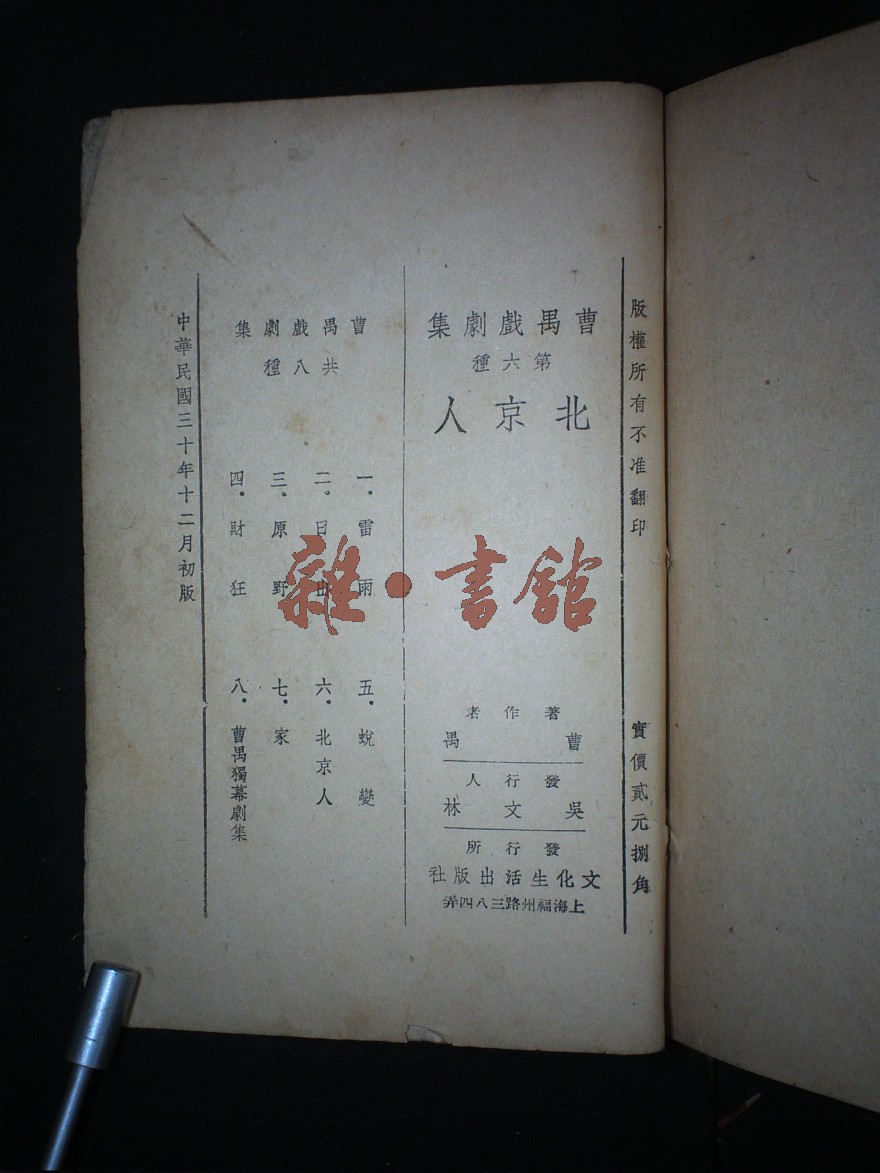 版權所有不准翻印
實價貳元捌角
曹禺戲劇集
第六種
北京人
著作者
曹禺
發行人
吳文林
發行所
文化生活出版社
上海福州路三八四弄
曹禺戲劇集
共八種
一·雷雨
二·日出
三·原野
四·財狂
五·蛻變
六·北京人
七·家
八·曹禺獨幕劇集
中華民國三十年十二月初版
雜·書館